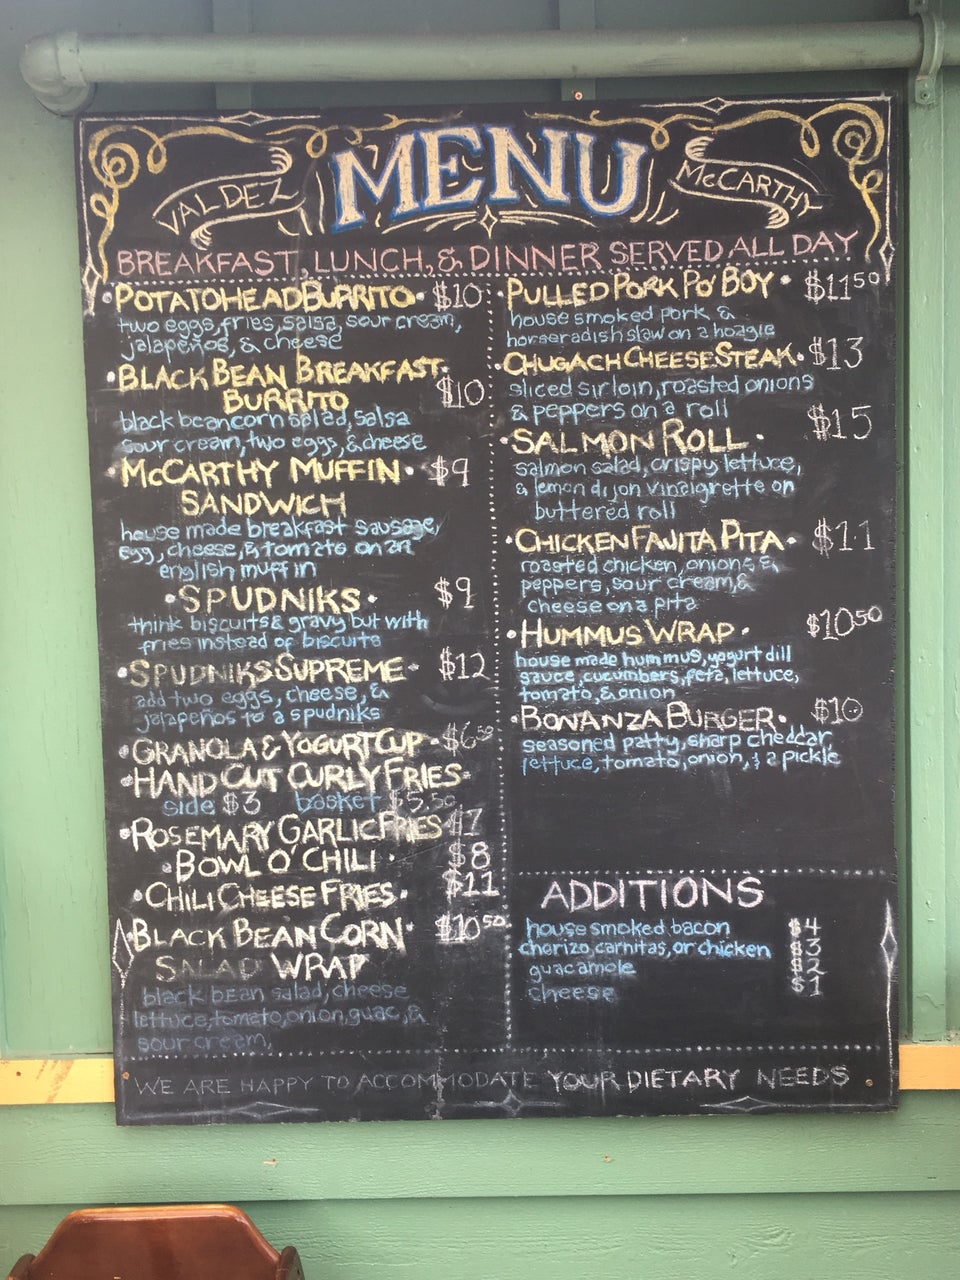 VALDEZ MENU McCARTHY
BREAKFAST, LUNCH, & DINNER SERVED ALL DAY
• POTATOHEAD BURRITO • $10
two eggs, fries, salsa, sour cream,
jalapeños, & cheese
• BLACK BEAN BREAKFAST •
BURRITO $10
black bean corn salad, salsa
sour cream, two eggs, & cheese
• McCARTHY MUFFIN • $9
SANDWICH
house made breakfast sausage,
egg, cheese, & tomato on an
english muffin
• SPUDNIKS • $9
think biscuits & gravy but with
fries instead of biscuits
• SPUDNIKS SUPREME • $12
add two eggs, cheese, &
jalapeños to a spudniks
• GRANOLA & YOGURT CUP • $6.50
• HAND CUT CURLY FRIES •
side $3 basket $5.50
• ROSEMARY GARLIC FRIES $7
• BOWL O' CHILI • $8
• CHILI CHEESE FRIES • $11
• BLACK BEAN CORN • $10.50
SALAD WRAP
black bean salad, cheese
lettuce, tomato, onion, guac, &
sour cream,
• PULLED PORK PO' BOY • $11.50
house smoked pork &
horseradish slaw on a hoagie
• CHUGACH CHEESE STEAK • $13
sliced sirloin, roasted onions
& peppers on a roll
• SALMON ROLL • $15
salmon salad, crispy lettuce,
& lemon dijon vinaigrette on
buttered roll
• CHICKEN FAJITA PITA • $11
roasted chicken, onions &
peppers, sour cream, &
cheese on a pita
• HUMMUS WRAP • $10.50
house made hummus, yogurt dill
sauce, cucumbers, feta, lettuce,
tomato, & onion
• BONANZA BURGER • $10
seasoned patty, sharp cheddar
lettuce, tomato, onion, & a pickle
ADDITIONS
house smoked bacon $4
chorizo, carnitas, or chicken $3
guacamole $2
cheese $1
WE ARE HAPPY TO ACCOMMODATE YOUR DIETARY NEEDS